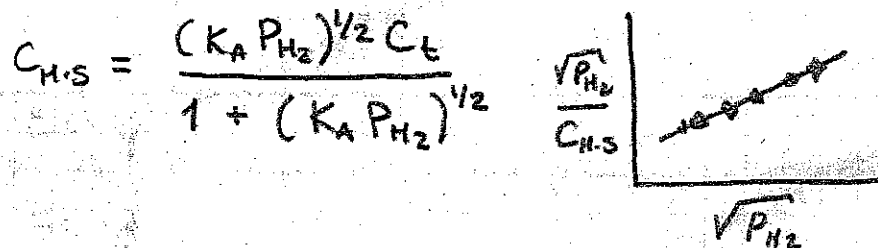 C_{H·S} = \frac{(K_A P_{H_2})^{1/2} C_t}{1 + (K_A P_{H_2})^{1/2}}
\frac{\sqrt{P_{H_2}}}{C_{H·S}}
\sqrt{P_{H_2}}